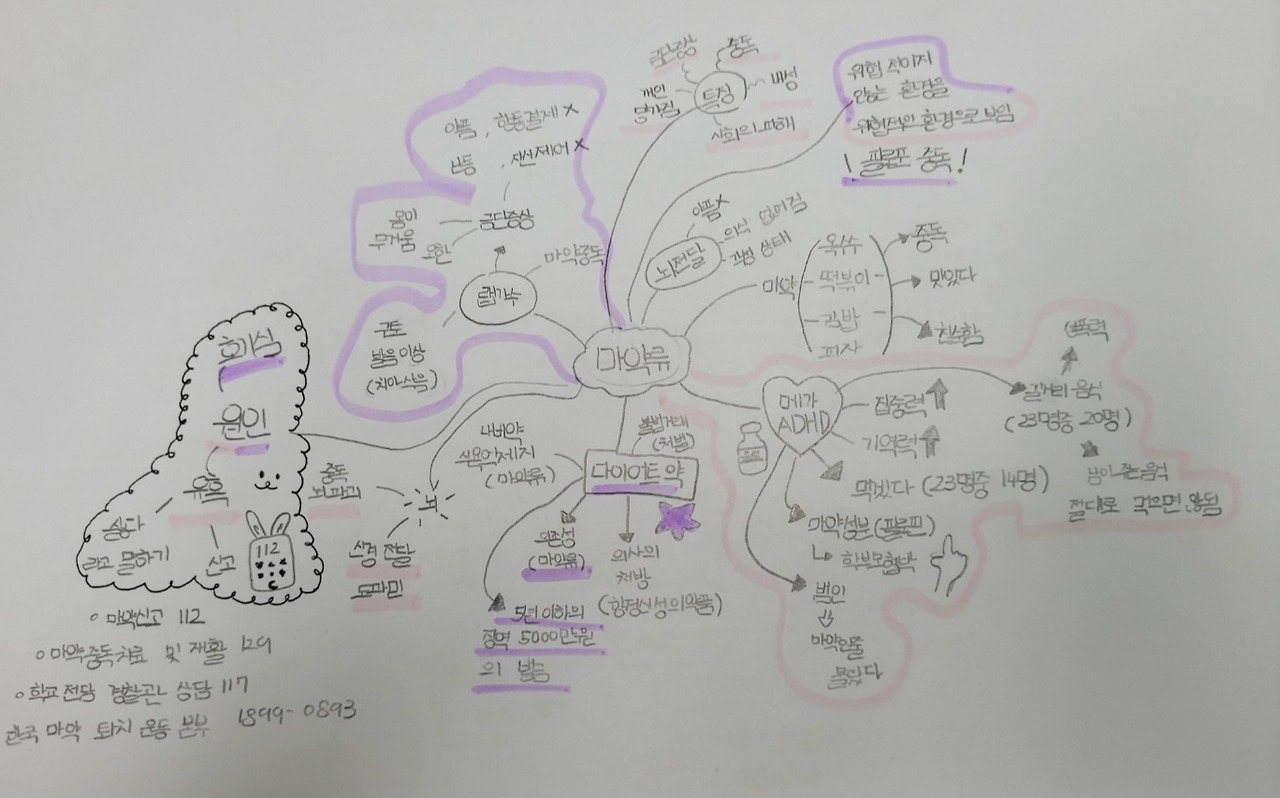 마약류
특징
금단증상
중독
내성
개인
망가짐
사회의 피해
위험 적이지
않는 환경을
위험적인 환경으로 보임
! 필로폰 중독 !
뇌전달
아픔x
의식 없어짐
각성 상태
마약
옥수수
떡볶이
김밥
피자
중독
맛있다
친숙함
메가
ADHD
집중력
기억력
먹겠다 (23명중 14명)
마약성분(필로폰)
학부모협박
범인
마약인줄
몰랐다
길거리 음식
(23명중 20명)
남이 준 음식
절대로 먹으면 안됨
다이어트 약
불법거래
(처벌)
나비약
식욕억제제
(마약류)
의존성
(마약류)
의사의
처방
(향정신성의약품)
5년 이하의
징역 5000만원
의 벌금
뇌
중독
뇌 파괴
신경 전달
도파민
랩가수
마약중독
금단증상
아픔, 행동결제 x
난동, 자신제어 x
몸이
무거움
오한
구토
발음이상
(치아삭음)
원인
호기심
유혹
싫다
라고 말하기
신고
112
○ 마약신고 112
○ 마약중독치료 및 재활 129
○ 학교 전담 경찰관 상담 117
한국 마약 퇴치 운동 본부 1899-0893